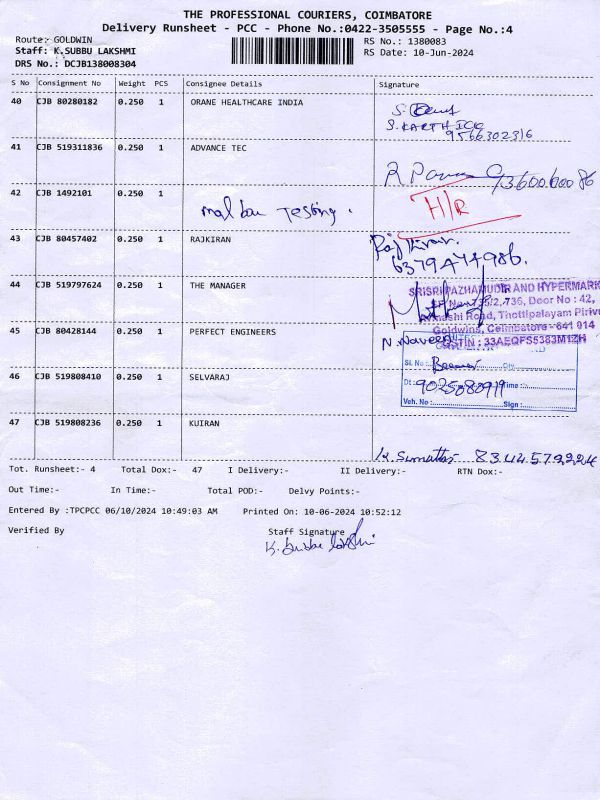 THE PROFESSIONAL COURIERS, COIMBATORE
Delivery Runsheet - PCC - Phone No.:0422-3505555 - Page No.:4
Route: GOLDWIN
RS No.: 1380083
Staff: K.SUBBU LAKSHMI
RS Date: 10-Jun-2024
DRS No.: DCJB138008304
S No Consignment No Weight PCS Consignee Details Signature
40 CJB 80280182 0.250 1 ORANE HEALTHCARE INDIA
S. KARTHICK
9566302316
41 CJB 519311836 0.250 1 ADVANCE TEC
42 CJB 1492101 0.250 1
Testing.
H/R
43 CJB 80457402 0.250 1 RAJKIRAN
6379474986.
44 CJB 519797624 0.250 1 THE MANAGER
SRISRI PAZHAMUDIR AND HYPERMARK
2,736, Door No : 42,
Road, Thottipalayam Pirivu
Goldwins, Coimbatore - 641 014
GSTIN : 33AEQFS5383M1ZH
45 CJB 80428144 0.250 1 PERFECT ENGINEERS
N. Naveen
Sl. No : City
46 CJB 519808410 0.250 1 SELVARAJ
Dt : Time :
Veh. No : Sign :
47 CJB 519808236 0.250 1 KUIRAN
8344579224
Tot. Runsheet:- 4 Total Dox:- 47 I Delivery:- II Delivery:- RTN Dox:-
Out Time:- In Time:- Total POD:- Delvy Points:-
Entered By :TPCPCC 06/10/2024 10:49:03 AM Printed On: 10-06-2024 10:52:12
Verified By Staff Signature
K. Subbu lakshmi